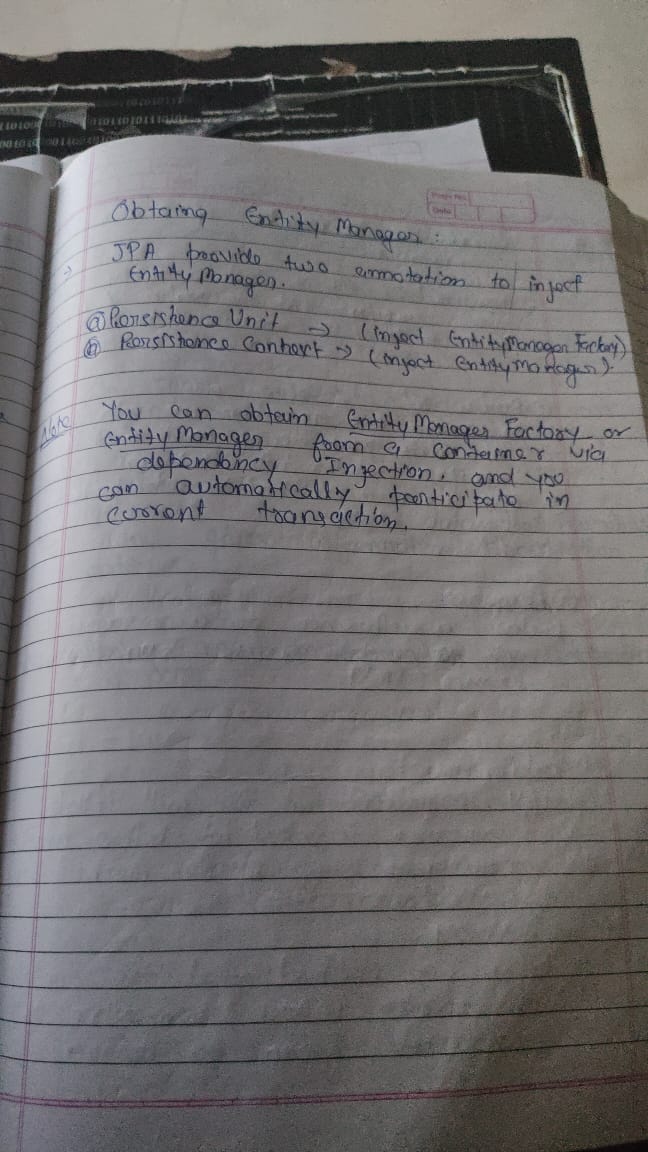 Obtaing Entity Manager :
→ JPA provide two annotation to inject
Entity Manager.
@ Persistence Unit → (inject EntityManager Factory)
@ Persistence Context → (inject EntityManager).
Note You can obtain Entity Manager Factory or
Entity Manager from a container via
dependency Injection. and you
can automatically participate in
current transaction.